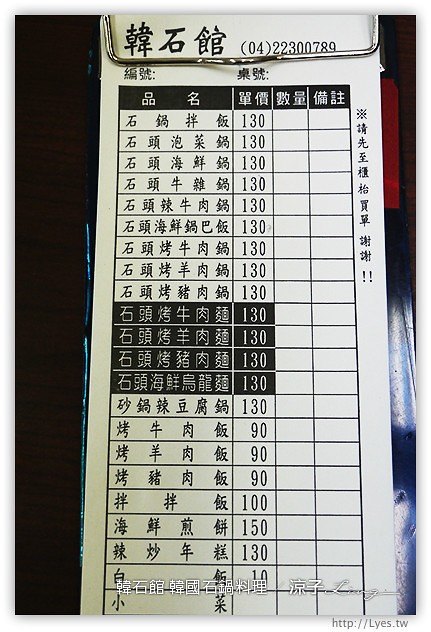 韓石館 (04)22300789
編號: 桌號:
品名 單價 數量 備註
石鍋拌飯 130
石頭泡菜鍋 130
石頭海鮮鍋 130
石頭牛雜鍋 130
石頭辣牛肉鍋 130
石頭海鮮鍋巴飯 130
石頭烤牛肉鍋 130
石頭烤羊肉鍋 130
石頭烤豬肉鍋 130
石頭烤牛肉麵 130
石頭烤羊肉麵 130
石頭烤豬肉麵 130
石頭海鮮烏龍麵 130
砂鍋辣豆腐鍋 130
烤牛肉飯 90
烤羊肉飯 90
烤豬肉飯 90
拌拌飯 100
海鮮煎餅 150
辣炒年糕 130
白飯 10
小菜
※請先至櫃枱買單 謝謝!!
韓石館 韓國石鍋料理 涼子
http://Lyes.tw